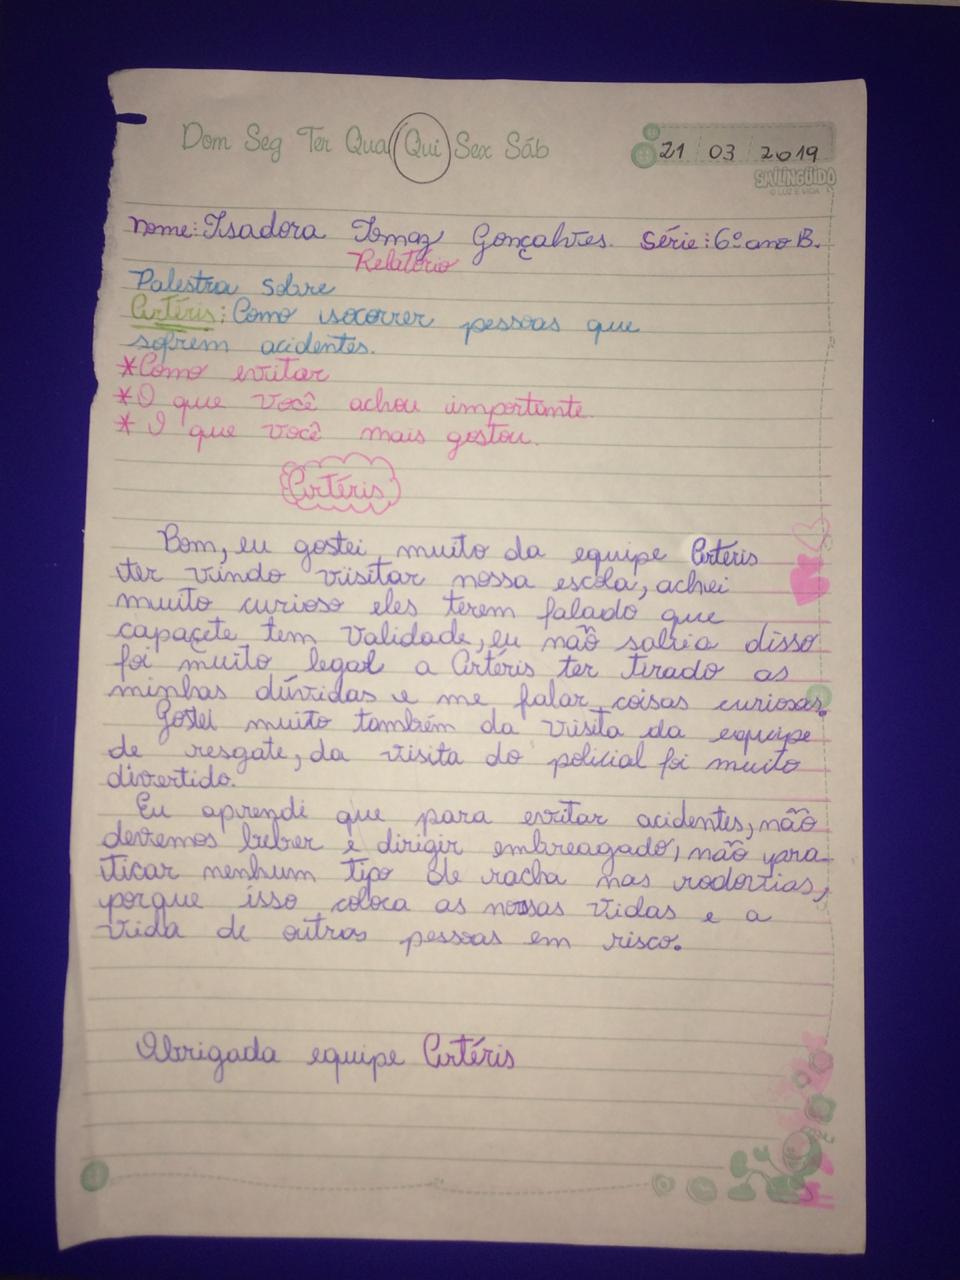 Dom Seg Ter Qua Qui Sex Sáb
21 03 2019
SMILINGÜIDO
O LUZ E VIDA
Nome: Isadora Tomaz Gonçalves. Série: 6º ano B.
Relatório
Palestra sobre
Artéris: Como socorrer pessoas que
sofrem acidentes.
*Como evitar
*O que você achou importante.
*O que você mais gostou.
Artéris
Bom, eu gostei muito da equipe Artéris
ter vindo visitar nossa escola, achei
muito curioso eles terem falado que
capaçete tem validade, eu não sabia disso
foi muito legal a Artéris ter tirado as
minhas dúvidas e me falar coisas curiosas.
Gostei muito também da visita da equipe
de resgate, da visita do policial foi muito
divertido.
Eu aprendi que para evitar acidentes, não
devemos beber e dirigir embreagado, não pra-
ticar nenhum tipo de racha nas rodovias,
porque isso coloca as nossas vidas e a
vida de outras pessoas em risco.
Obrigada equipe Artéris